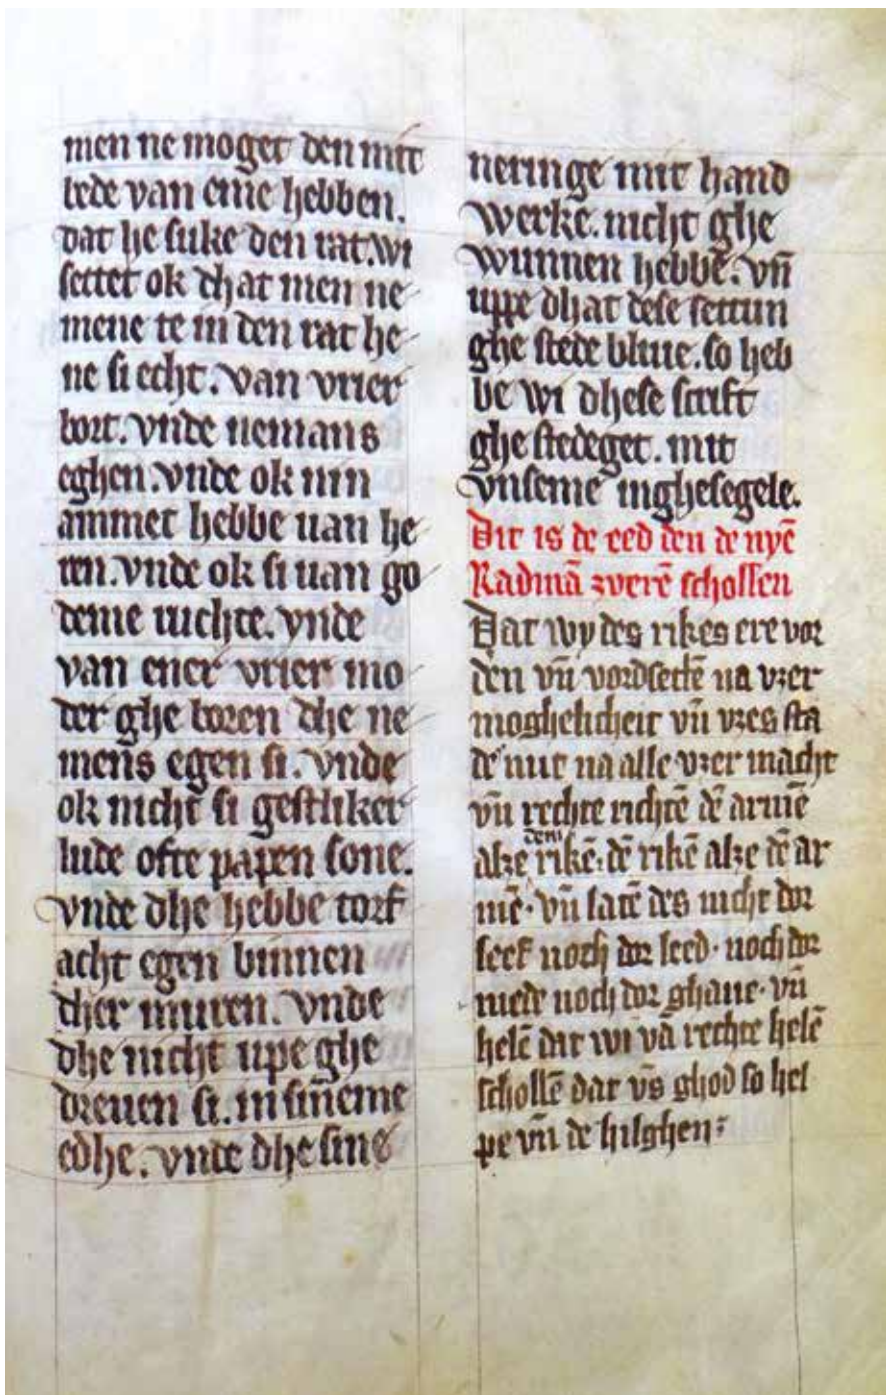 men ne moget den mit
bede van eme hebben.
dat he suke den rat. wi
settet ok dhat men ne
mene te in den rat he
ne si echt. van vrier
bort. vnde nemans
eghen. vnde ok nin
ammet hebbe uan he
ren. vnde ok si uan go
deme ruchte. vnde
van ener vrier mo
der ghe boren dhe ne
mens egen si. vnde
ok nicht si gestliker
lude ofte papen sone.
vnde dhe hebbe torf
acht egen binnen
ther muren. vnde
dhe nicht upe ghe
dreuen si. in sineme
edhe. vnde dhe sine
neringe mit hand
werke. nicht ghe
wunnen hebbe. vn̄
uppe dhat dese settun
ghe stede bliue. so heb
be wi dhese scrift
ghe stedeget. mit
vnseme inghesegele.
Dit is de eed den de nyē
Radmā zverē schollen
Dat wy des rikes ere vor
den vn̄ vordsettē na vzer
moghelicheit vn̄ vzes sta
de nut na alle vzer macht
vn̄ rechte richtē dē armē
alze dem rikē. dē rikē alze dē ar
mē. vn̄ latē des nicht dor
leef noch dor leed. noch dor
mede noch dor ghaue. vn̄
helē dat wi vā rechte helē
schollē dat vs̄ ghod so hel
pe vn̄ de hilghen: